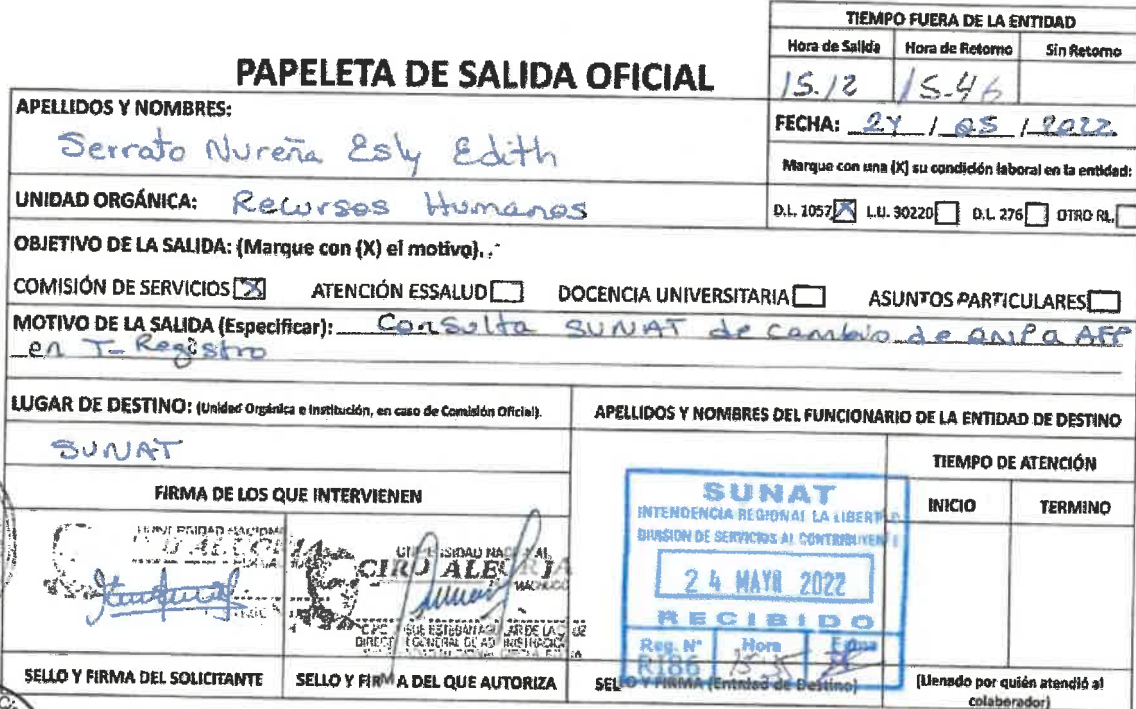 TIEMPO FUERA DE LA ENTIDAD
Hora de Salida Hora de Retorno Sin Retorno
15.12 15.46
PAPELETA DE SALIDA OFICIAL
APELLIDOS Y NOMBRES:
Serrato Nureña Esly Edith
FECHA: 24 / 05 / 2022
Marque con una (X) su condición laboral en la entidad:
UNIDAD ORGÁNICA: Recursos Humanos
D.L. 1057 X L.U. 30220 D.L. 276 OTRO RL.
OBJETIVO DE LA SALIDA: (Marque con (X) el motivo).
COMISIÓN DE SERVICIOS X ATENCIÓN ESSALUD DOCENCIA UNIVERSITARIA ASUNTOS PARTICULARES
MOTIVO DE LA SALIDA (Especificar): Consulta SUNAT de cambio de ONP a AFP
en T-Registro
LUGAR DE DESTINO: (Unidad Orgánica e Institución, en caso de Comisión Oficial).
SUNAT
APELLIDOS Y NOMBRES DEL FUNCIONARIO DE LA ENTIDAD DE DESTINO
TIEMPO DE ATENCIÓN
INICIO TERMINO
FIRMA DE LOS QUE INTERVIENEN
UNIVERSIDAD NACIONAL
CIRO ALEGRÍA
SUNAT
INTENDENCIA REGIONAL LA LIBERTAD
DIVISION DE SERVICIOS AL CONTRIBUYENTE
24 MAYO 2022
RECIBIDO
Reg. N° Hora
R186
SELLO Y FIRMA DEL SOLICITANTE
SELLO Y FIRMA DEL QUE AUTORIZA
SELLO Y FIRMA (Entidad de Destino)
(Llenado por quién atendió al
colaborador)